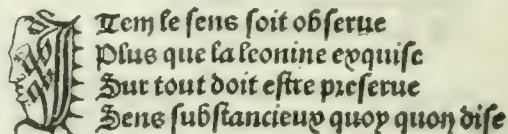 Item le sens soit obserue
Plus que la leonine exquise
Sur tout doit estre preserue
Sens substancieux quoy quon dise